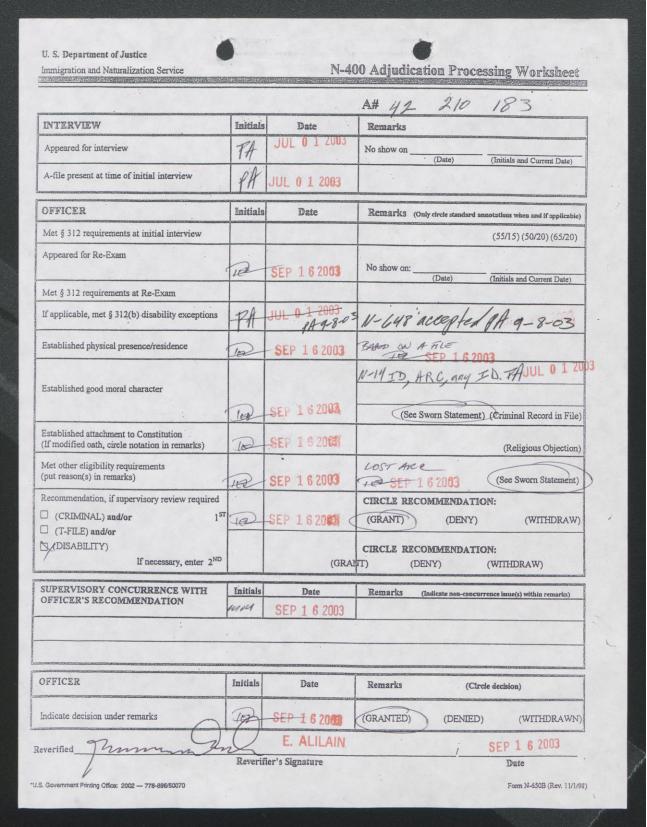 U. S. Department of Justice
Immigration and Naturalization Service
N-400 Adjudication Processing Worksheet
A# 42 210 183
INTERVIEW Initials Date Remarks
Appeared for interview PA JUL 0 1 2003 No show on
(Date) (Initials and Current Date)
A-file present at time of initial interview PA JUL 0 1 2003
OFFICER Initials Date Remarks (Only circle standard annotations when and if applicable)
Met § 312 requirements at initial interview (55/15) (50/20) (65/20)
Appeared for Re-Exam SEP 1 6 2003 No show on:
(Date) (Initials and Current Date)
Met § 312 requirements at Re-Exam
If applicable, met § 312(b) disability exceptions PA JUL 0 1 2003 PA 9-8-03 N-648 accepted PA 9-8-03
Established physical presence/residence SEP 1 6 2003 BASED ON A FILE
SEP 1 6 2003
N-14 ID, ARC, any I.D. PA JUL 0 1 2003
Established good moral character SEP 1 6 2003 (See Sworn Statement) (Criminal Record in File)
Established attachment to Constitution
(If modified oath, circle notation in remarks) SEP 1 6 2003 (Religious Objection)
Met other eligibility requirements LOST ARC
(put reason(s) in remarks) SEP 1 6 2003 SEP 1 6 2003 (See Sworn Statement)
Recommendation, if supervisory review required CIRCLE RECOMMENDATION:
(CRIMINAL) and/or 1ST SEP 1 6 2003 (GRANT) (DENY) (WITHDRAW)
(T-FILE) and/or
(DISABILITY) CIRCLE RECOMMENDATION:
If necessary, enter 2ND (GRANT) (DENY) (WITHDRAW)
SUPERVISORY CONCURRENCE WITH OFFICER'S RECOMMENDATION Initials Date Remarks (Indicate non-concurrence issue(s) within remarks)
SEP 1 6 2003
OFFICER Initials Date Remarks (Circle decision)
Indicate decision under remarks SEP 1 6 2003 (GRANTED) (DENIED) (WITHDRAWN)
Reverified E. ALILAIN SEP 1 6 2003
Reverifier's Signature Date
*U.S. Government Printing Office: 2002 — 778-896/50070 Form N-650B (Rev. 11/1/98)